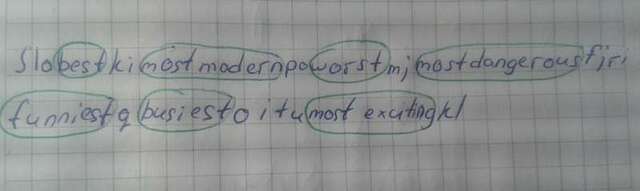 slobestkimostmodernpoworstmjmostdangerousfjri
funniestqbusiestoitumost excitingkl